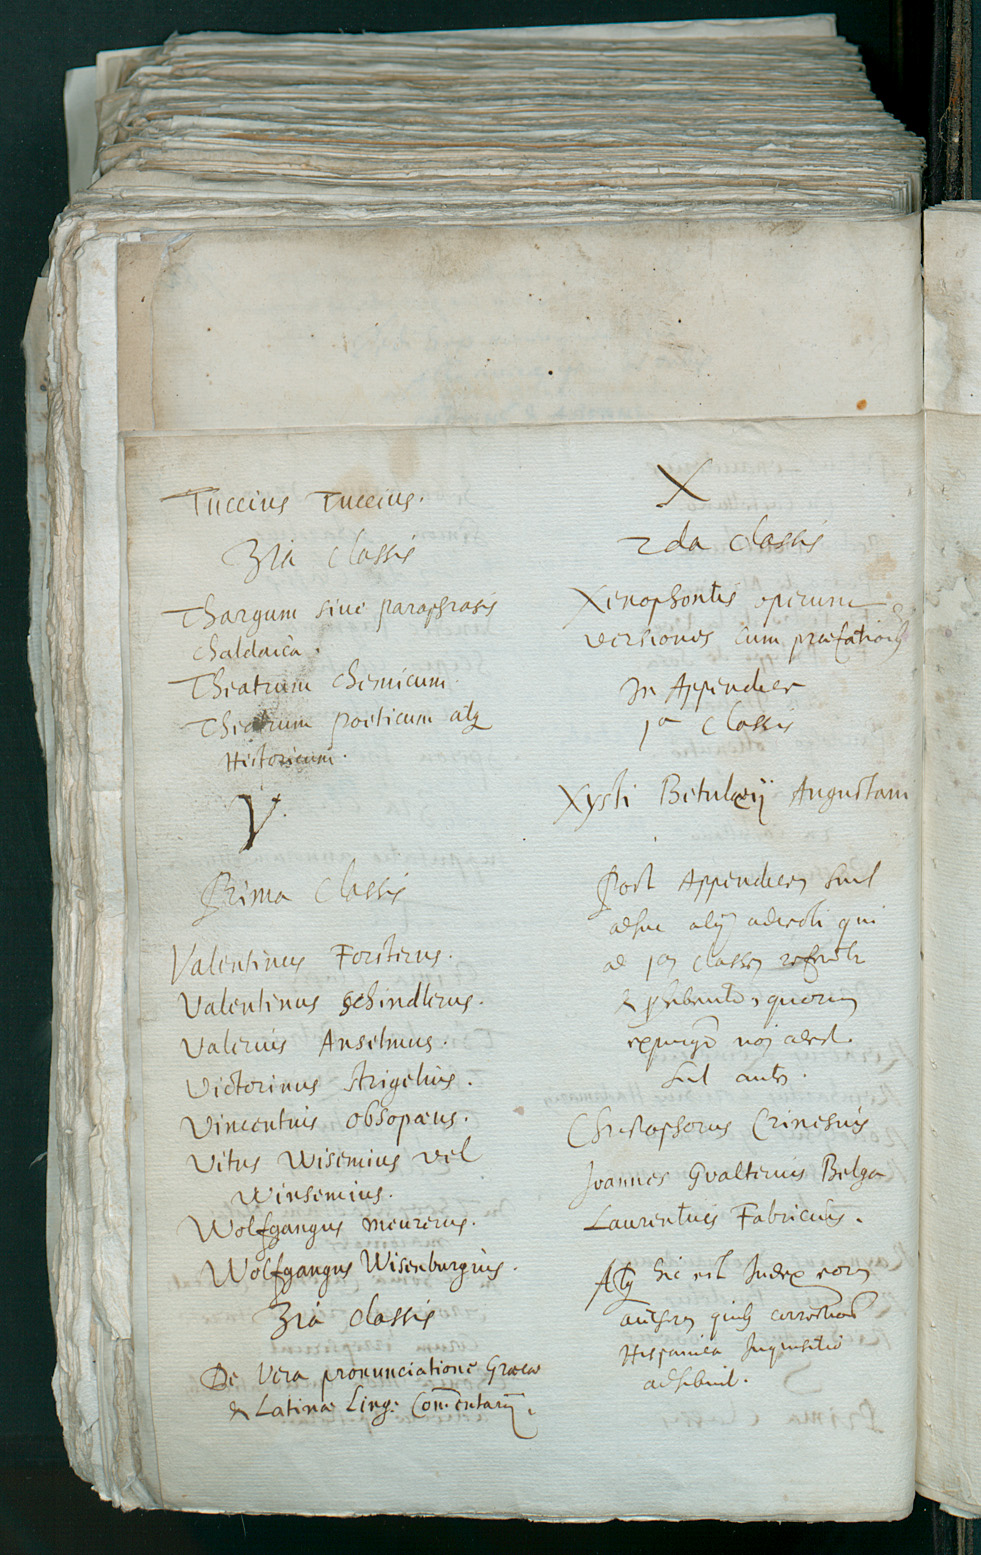 Tuccius Tuccius.
3ia classis
Thargum siue paraphrasis
chaldaica.
Theatrum chemicum.
Theatrum poeticum atq
Historicum.
V.
Prima Classis
Valentinus Forsterus.
Valentinus Schindlerus.
Valerius Anselmus.
Victorinus Strigelius.
Vincentius Obsopæus.
Vitus Wisemius vel
Winsemius.
Wolfgangus Meurerus.
Wolfgangus Wisenburgius.
3ia classis
De Vera pronunciatione Græcæ
& Latinæ Ling. Comentarij.
X
2da classis
Xenophontis operum
versiones cum præfationib
In Appendice
1a Classis
Xysti Betuleij Augustani
Post Appendicem sunt
adhuc alij adiecti qui
ad 1am classem
quorum
non adest.
Sunt autem.
Christophorus Crinesius
Joannes Gualterius Belga
Laurentius Fabricius.
Atq hic est Index eorum
authorum quib correctionem
Hispanica Inquisitio
adhibuit.